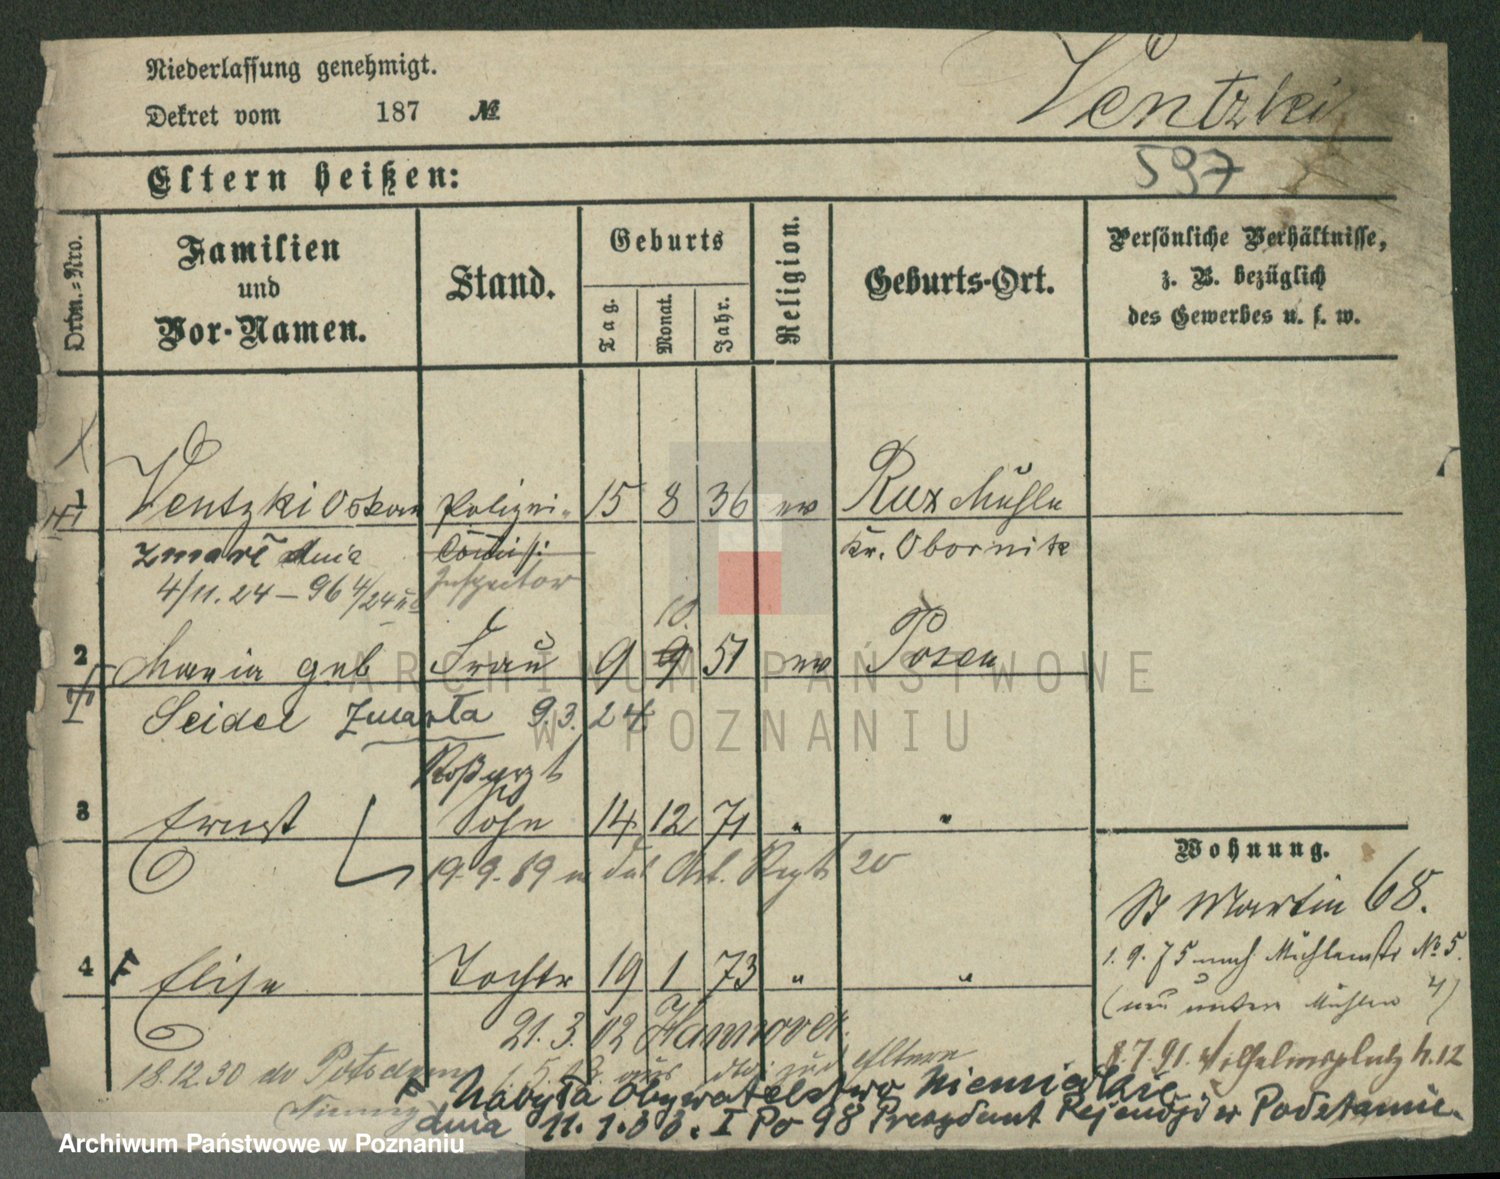 Niederlassung genehmigt.
Dekret vom 187 №
Ventzki
597
Eltern heißen:
Ordn.=Nro.
Familien
und
Vor-Namen.
Stand.
Geburts
Tag.
Monat.
Jahr.
Religion.
Geburts-Ort.
Persönliche Verhältnisse,
z. B. bezüglich
des Gewerbes u. s. w.
1 Ventzki Oskar Polizei- 15 8 36 ev Rux Mühle
zmarł dnia Commiss: Kr. Obornik
4/11.24 – 96 4/24 Inspector
10.
2 Maria geb Frau 9 9 51 ev Posen
Seidel zmarła 9.3.24
Roßarzt
3 Ernst Sohn 14 12 71 " "
19.9.89 Art. Regt 20
Wohnung.
St Martin 68.
1.9.75 nach Mühlenstr No 5.
4 F Elise Tochter 19 1 73 " "
(neu untere Mühlen 4)
21.3.02 Hannover.
8.7.91 Wilhelmsplatz N. 12
18.12.30 do Potsdam
aus zu d Eltern
Niemcy
F Nabyła Obywatelstwo Niemieckie
dnia 11.1.33. I Po 98 Prezydent Rejencji w Poczdamie.
ARCHIWUM PAŃSTWOWE
W POZNANIU
Archiwum Państwowe w Poznaniu